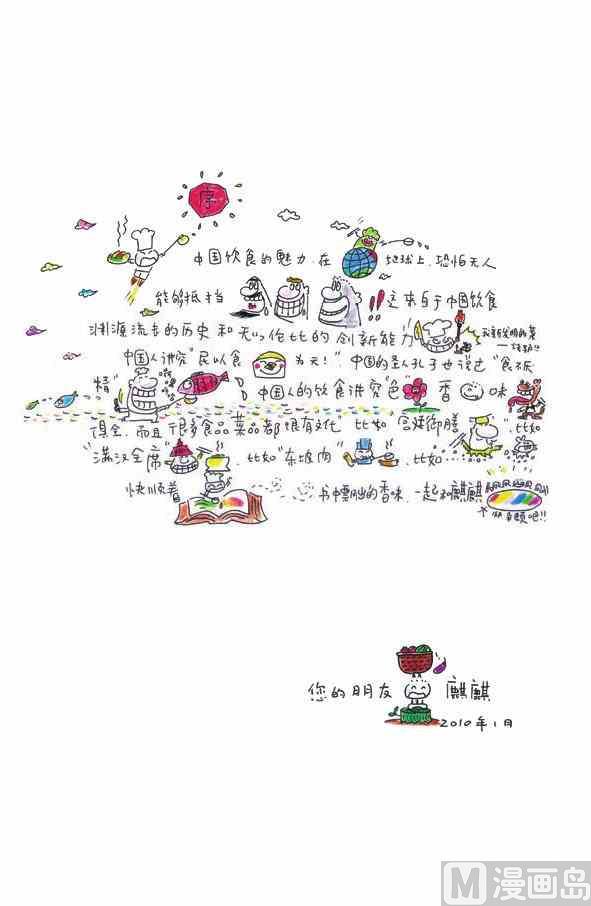 序
中国饮食的魅力,在地球上,恐怕无人
能够抵挡!!这来自于中国饮食
渊源流长的历史和无以伦比的创新能力
中国人讲究"民以食为天!",中国的圣人孔子也说过"食不厌
精",中国人的饮食讲究"色"香味
俱全,而且很多食品菜品都很有文化,比如"宫廷御膳",比如
"满汉全席",比如"东坡肉",比如……
快顺着书中飘出的香味,一起和麒麒
快朵颐吧!!
您的朋友 麒麒
2010年1月
M 漫画岛